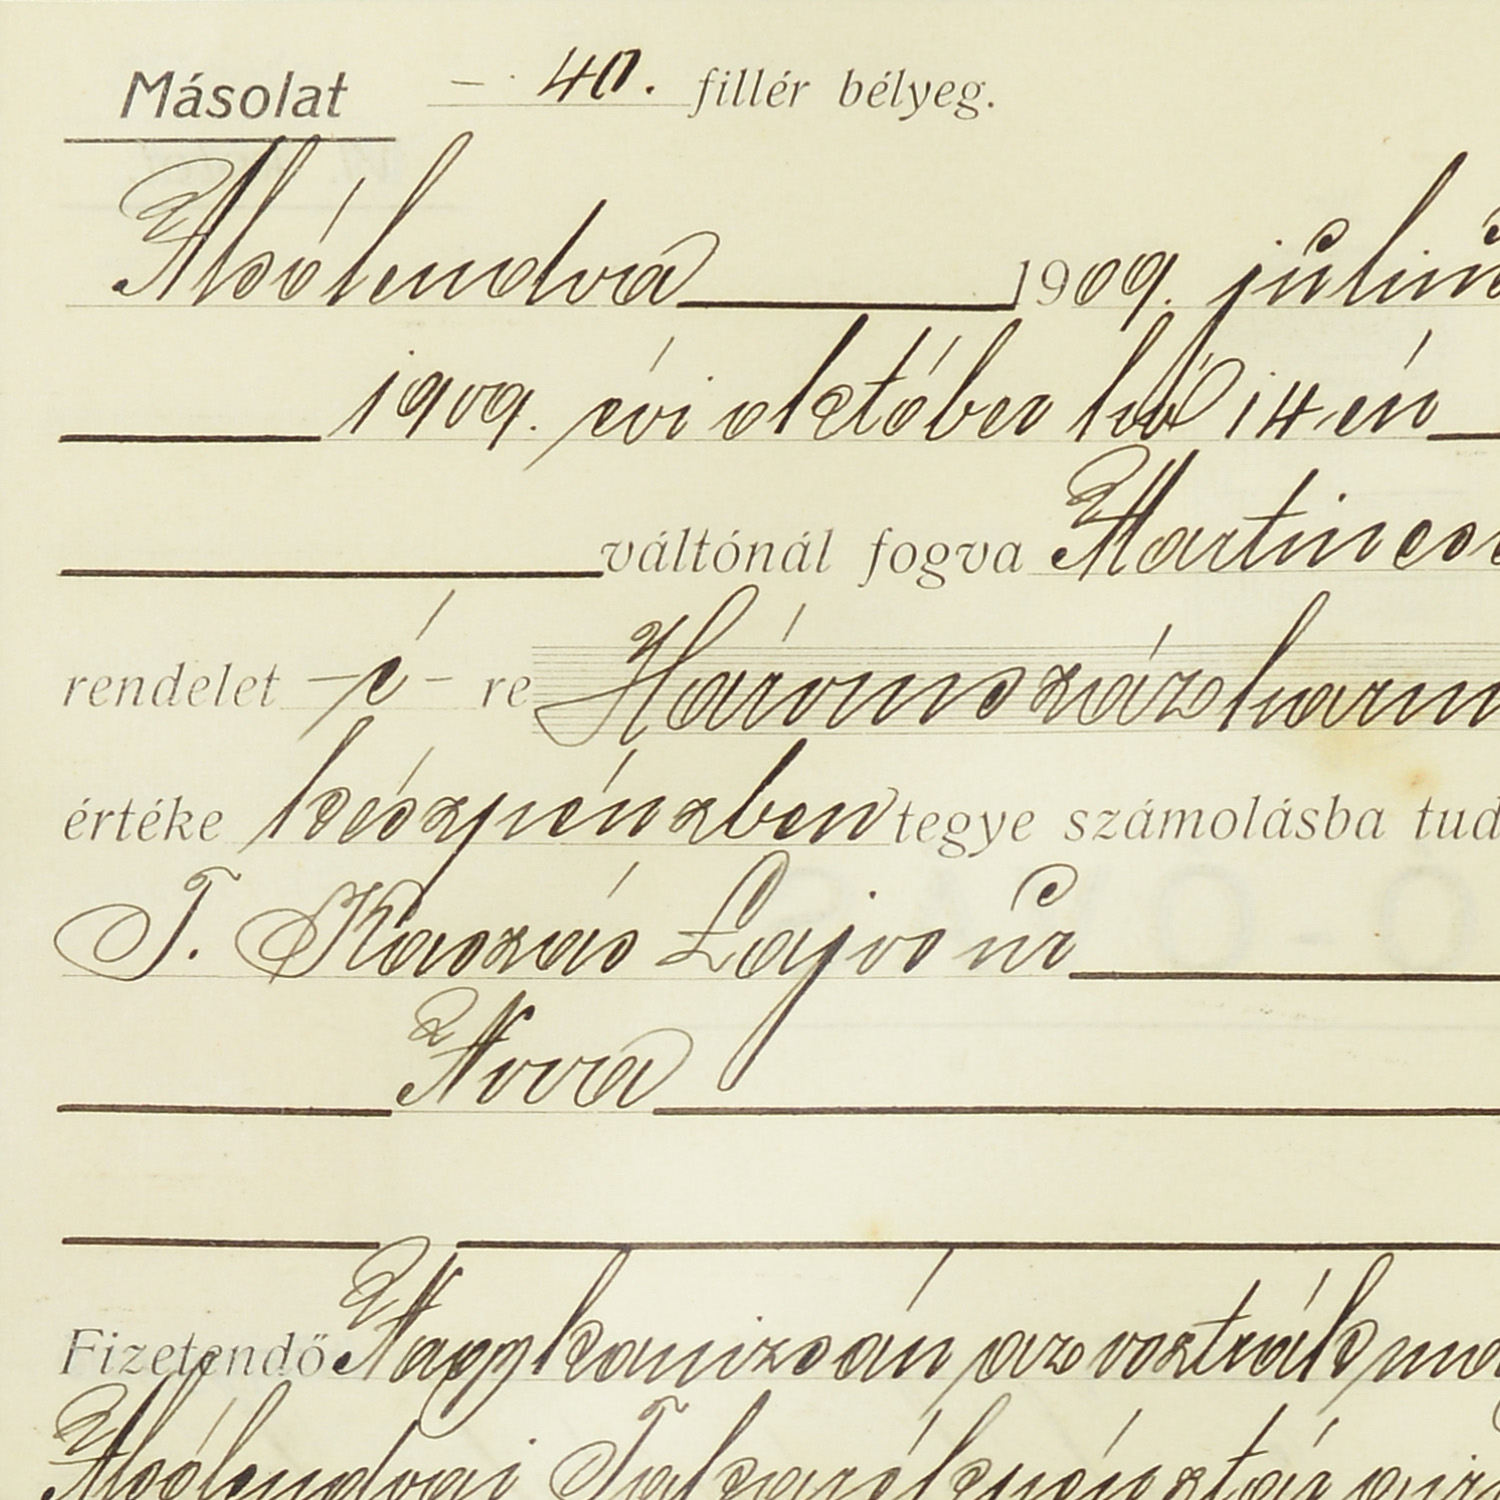 Másolat – 40. fillér bélyeg.
Alsólendva 1909. július
1909. évi október hó 14 én
váltónál fogva Martincs
rendelet – é – re Háromszázharm
értéke készpénzben tegye számolásba tud
T. Kaszás Lajos úr
Nova
Fizetendő Nagykanizsán az osztrák ma
Alsólendvai Takarékpénztár